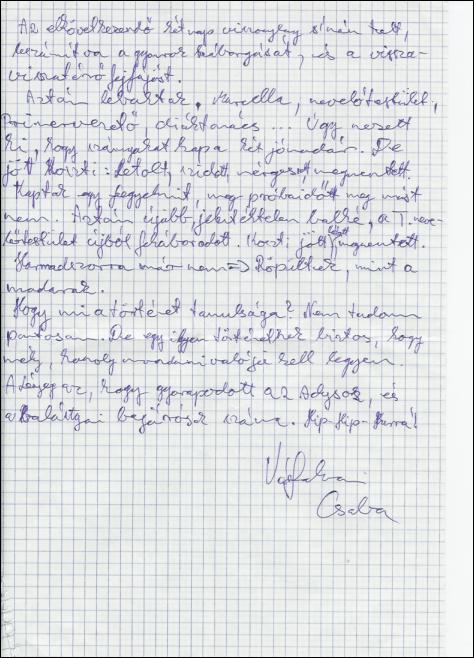 Az elkövetkezendő két nap viszonylag simán telt,
leszámítva a gyomrok háborgását, és a vissza-
visszatérő fejfájást.
Aztán lebuktak. Marcella, nevelőtestület,
diáktanács ... Úgy nézett
ki, hogy szárnyakat kap a két jómadár. De
jött Koszti: látott, szidott, mérgesen megmentett.
Kaptak egy fegyelmit, meg próbaidőt meg most
nem. Aztán újabb, feltételtelen balhé, a T. neve-
lőtestület újból felháborodott. Koszti jött, látott, megmentett.
Harmadszorra már nem => Röpültek, mint a
madarak.
Hogy mi a történet tanulsága? Nem tudom
pontosan. De egy ilyen történetnek biztos, hogy
mély, komoly mondanivalója kell legyen.
A lényeg az, hogy gyarapodott az Adysok, és
a bejárósok száma. Hip-Hip-Hurrá!
Csaba